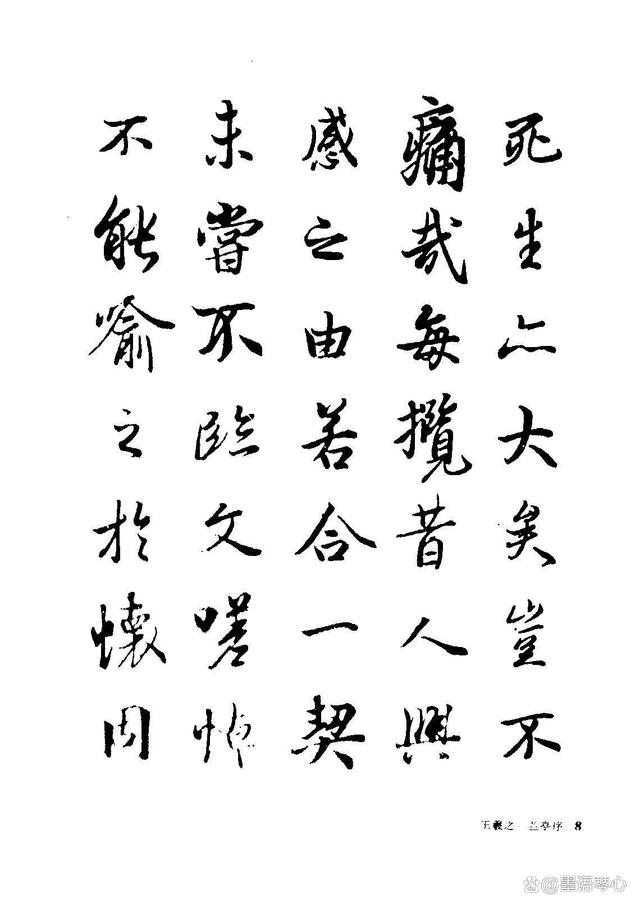 死生亦大矣豈不
痛哉每攬昔人興
感之由若合一契
未嘗不臨文嗟悼
不能喻之於懷固
王羲之 兰亭序 8
@墨语琴心